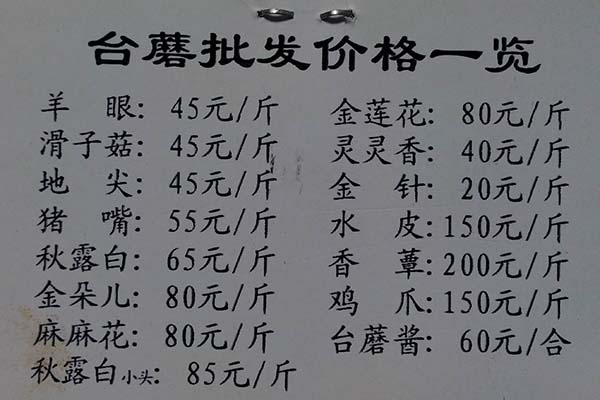 台磨批发价格一览
羊 眼: 45元/斤
滑子菇: 45元/斤
地 尖: 45元/斤
猪 嘴: 55元/斤
秋露白: 65元/斤
金朵儿: 80元/斤
麻麻花: 80元/斤
秋露白小头: 85元/斤
金莲花: 80元/斤
灵灵香: 40元/斤
金 针: 20元/斤
水 皮: 150元/斤
香 蕈: 200元/斤
鸡 爪: 150元/斤
台磨酱: 60元/合